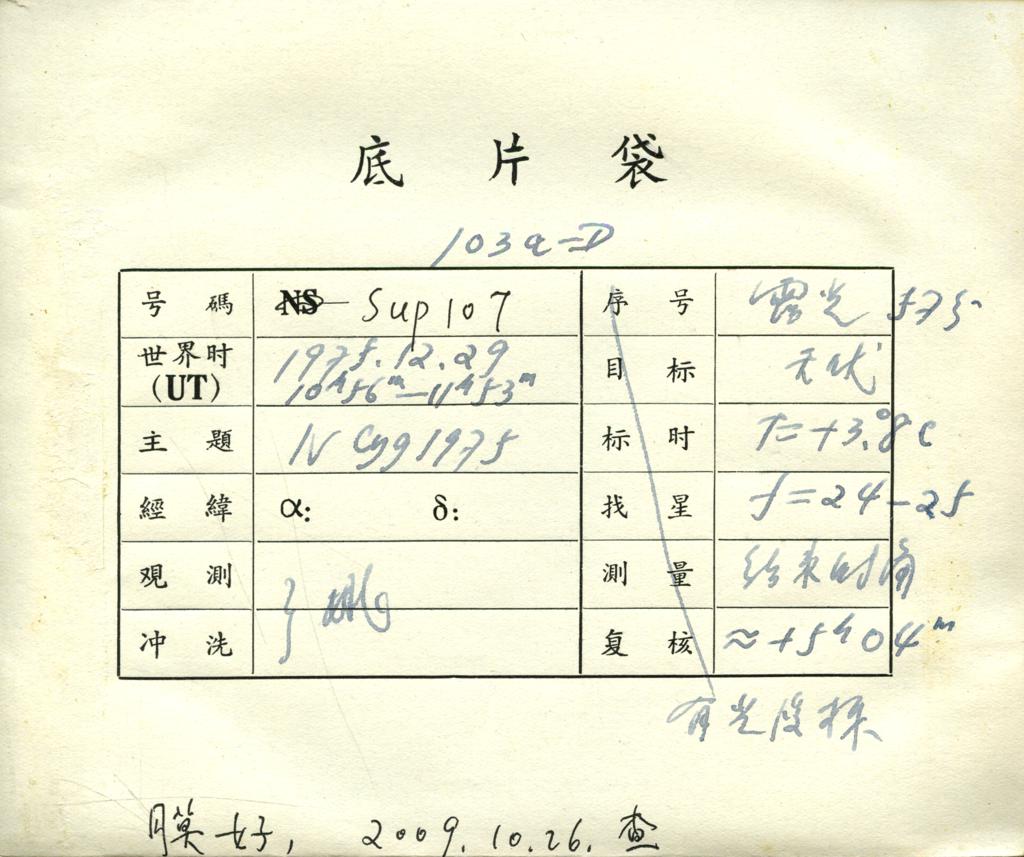 底片袋
103a-D
号碼 NS Sup 107 序号 露光 57分
世界时 (UT) 1975.12.29 目标
10h56m—11h53m
主題 N Cyg 1975 标时 T=+3.°8C
經緯 α: δ: 找星 f=24-25
观測 測量 结束时角
冲洗 复核 ≈+5h04m
有光度标
膜好, 2009.10.26.查